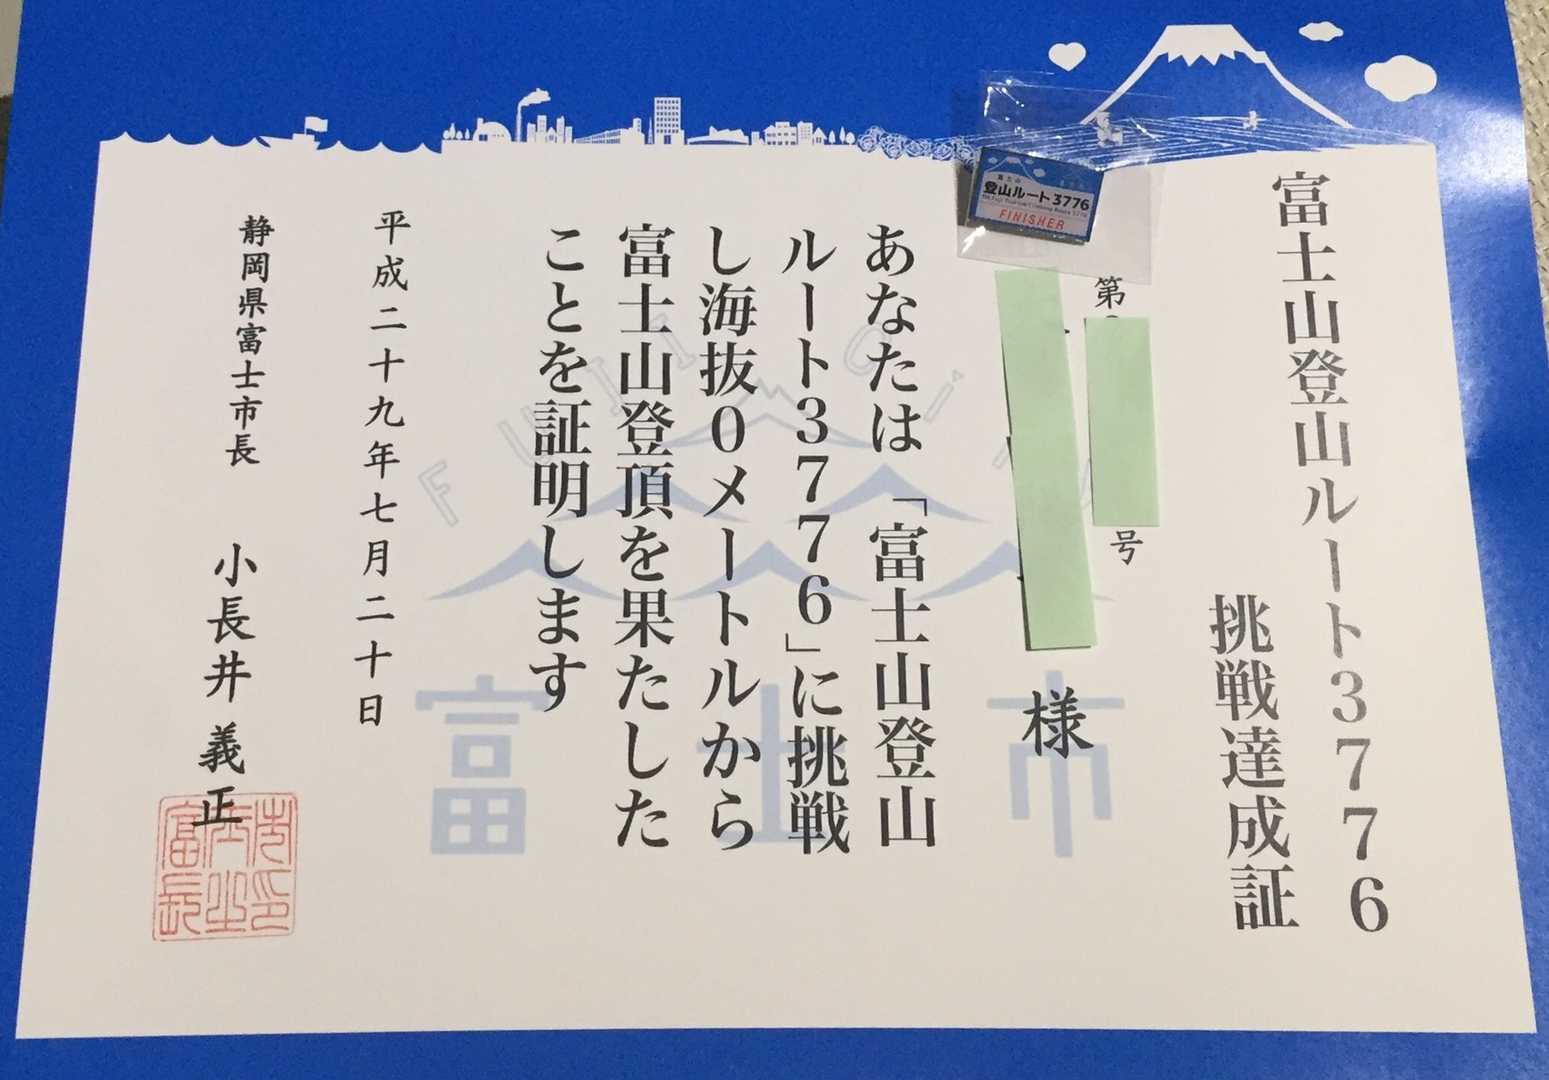 富士山登山ルート3776
挑戦達成証
第
号
様
あなたは「富士山登山
ルート3776」に挑戦
し海抜0メートルから
富士山登頂を果たした
ことを証明します
平成二十九年七月二十日
静岡県富士市長 小長井義正
富士山
登山ルート3776
FINISHER
FUJI CITY
富士市